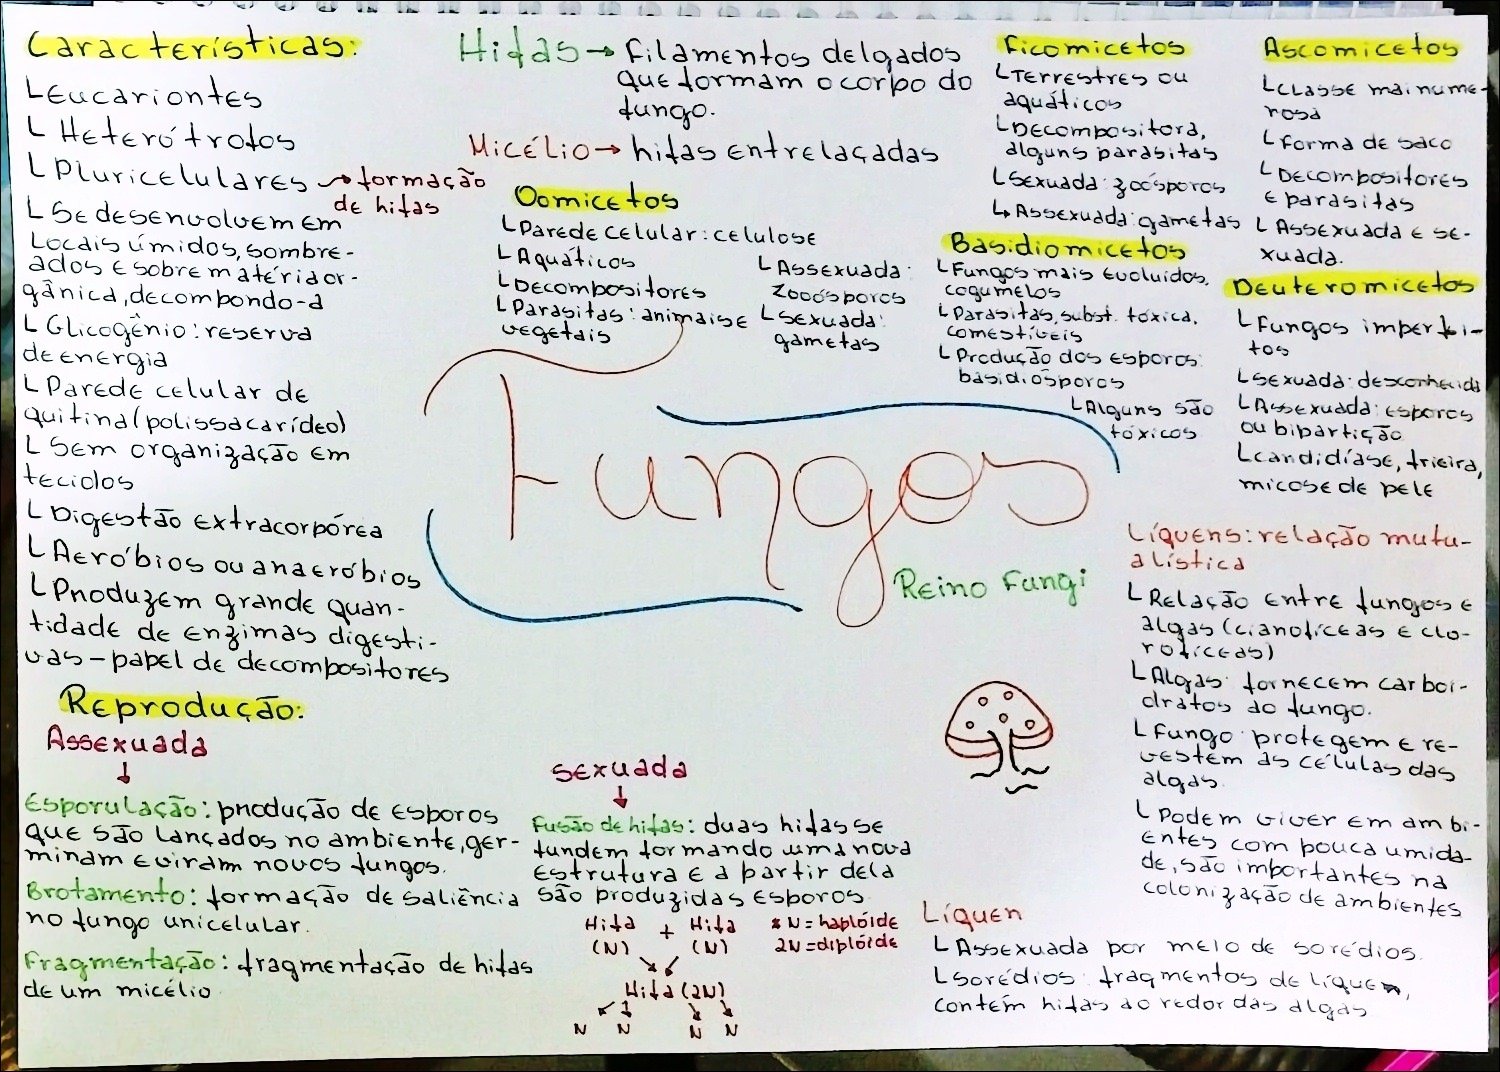 Características:
Eucariontes
Heterótrofos
Pluricelulares → formação
de hifas
Se desenvolvem em
Locais úmidos, sombre-
ados e sobre matéria or-
gânica, decompondo-a
Glicogênio: reserva
de energia
Parede celular de
quitina (polissacarídeo)
Sem organização em
tecidos
Digestão extracorpórea
Aeróbios ou anaeróbios
Produzem grande quan-
tidade de enzimas digesti-
vas - papel de decompositores
Hifas → Filamentos delgados
que formam o corpo do
fungo.
Micélio → hifas entrelaçadas
Oomicetos
Parede celular: celulose
Aquáticos
Decompositores
Parasitas: animais e
vegetais
Assexuada:
zooósporos
Sexuada:
gametas
Ficomicetos
Terrestres ou
aquáticos
Decompositora,
alguns parasitas
Sexuada: zoósporos
Assexuada: gametas
Basidiomicetos
Fungos mais evoluídos,
cogumelos
Parasitas, subst. tóxica,
comestíveis
Produção dos esporos:
basidiósporos
Alguns são
tóxicos
Ascomicetos
Classe mai nume-
rosa
Forma de saco
Decompositores
e parasitas
Assexuada e se-
xuada.
Deuteromicetos
Fungos imperfei-
tos
Sexuada: desconhecida
Assexuada: esporos
ou bipartição
candidíase, frieira,
micose de pele
Fungos
Reino Fungi
Líquens: relação mutu-
alística
Relação entre fungos e
algas (cianofíceas e clo-
rofíceas)
Algas: fornecem carboi-
dratos ao fungo.
Fungo: protegem e re-
vestem as células das
algas.
Podem viver em ambi-
entes com pouca umida-
de, são importantes na
colonização de ambientes
Líquen
Assexuada por meio de sorédios.
Sorédios: fragmentos de líquen,
contém hifas ao redor das algas
Reprodução:
Assexuada
↓
Esporulação: produção de esporos
que são lançados no ambiente, ger-
minam e viram novos fungos.
Brotamento: formação de saliência
no fungo unicelular.
Fragmentação: fragmentação de hifas
de um micélio.
Sexuada
↓
Fusão de hifas: duas hifas se
fundem formando uma nova
estrutura e a partir dela
são produzidas esporos.
Hifa + Hifa
(N) (N)
* N = haplóide
2N = diplóide
Hifa (2N)
N N N N